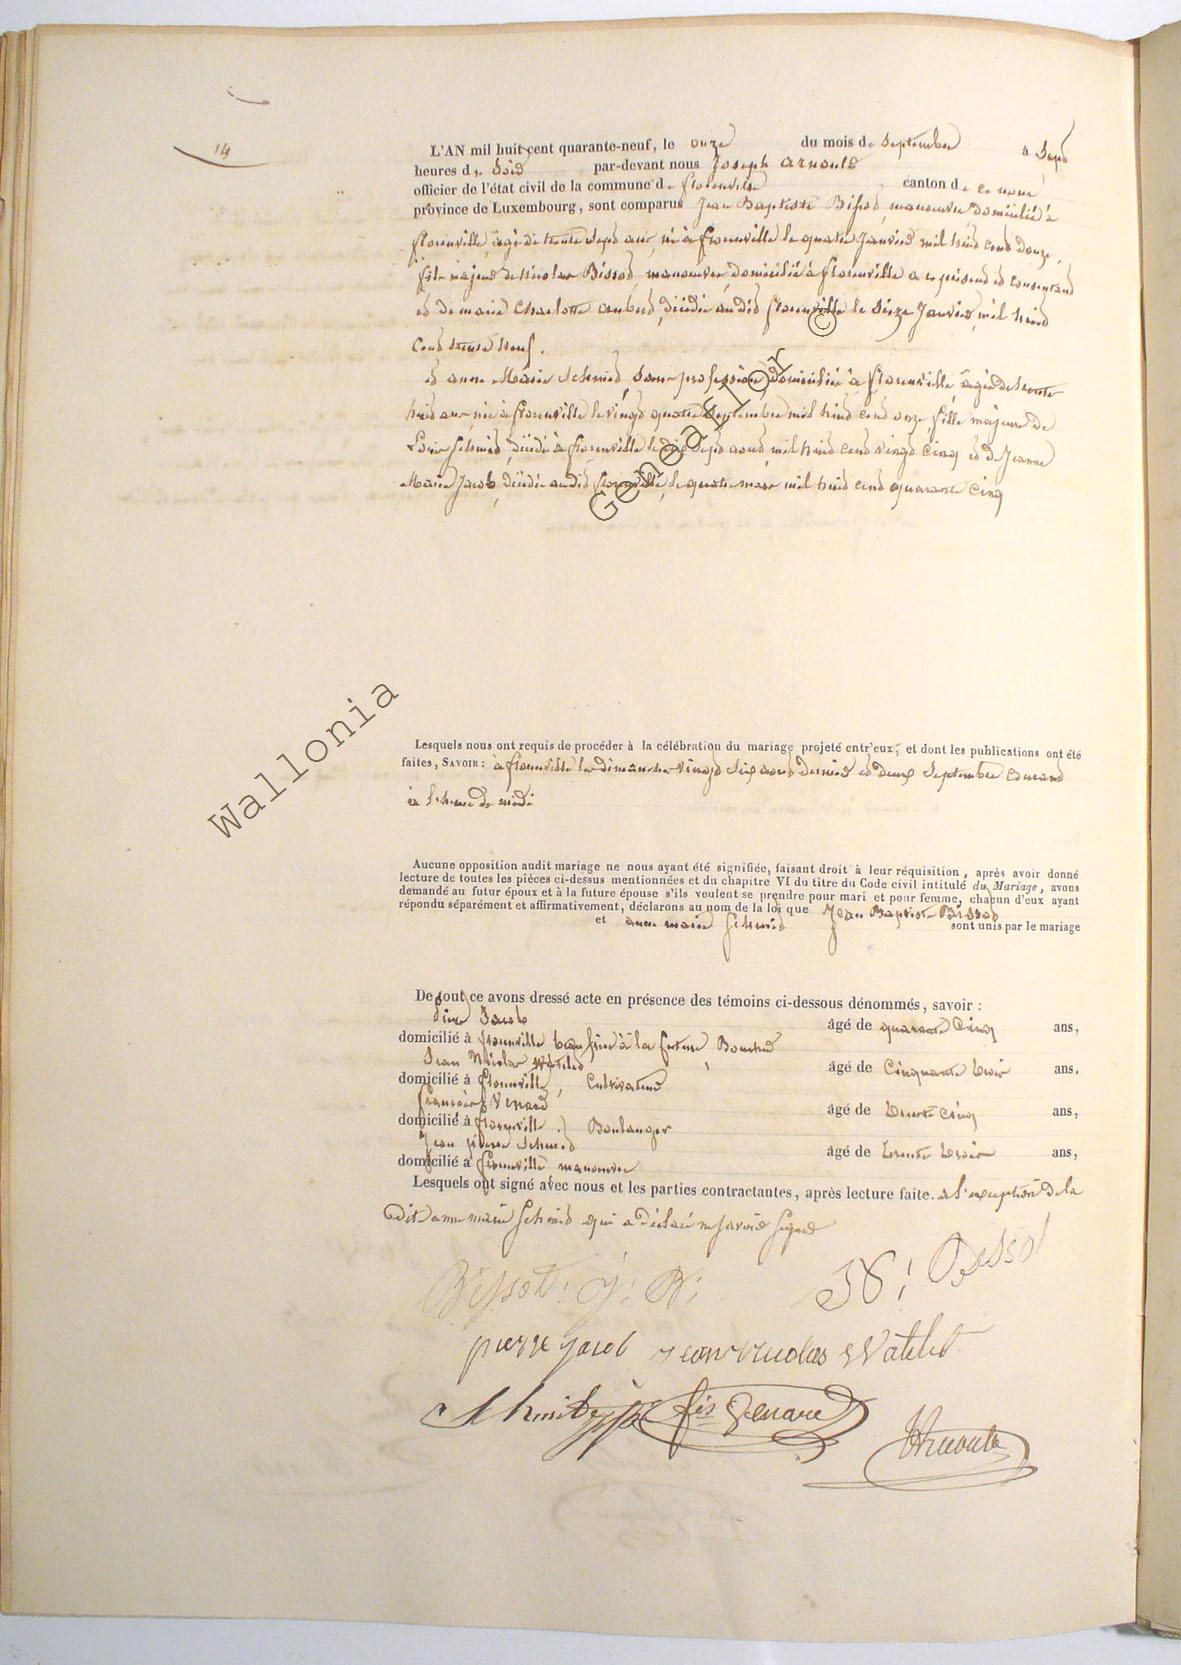 14
L'AN mil huit cent quarante-neuf, le onze du mois de Septembre à Sept
heures du Soir par-devant nous Joseph Arnould
officier de l'état civil de la commune de florenville, canton de ce nom
province de Luxembourg, sont comparus Jean Baptiste Bissot, manoeuvre, domicilié à
florenville, âgé de trente Sept ans, né à florenville le quatre Janvier mil huit cent douze,
fils majeur de Nicolas Bissot, manoeuvre, domicilié à florenville a ce présent et consentant
et de marie Charlotte, décédée au dit florenville le Seize Janvier, mil huit
cent trente neuf.
et anne Marie Schmid, Sans profession, domiciliée à florenville, âgée de trente
huit ans, née à florenville le vingt quatre Septembre mil huit cent onze, fille majeure de
Louis Schmid, décédé à florenville le dix Sept août, mil huit cent vingt cinq et de Jeanne
Marie Jacob, décédée au dit florenville, le quatre mars mil huit cent quarante cinq
Lesquels nous ont requis de procéder à la célébration du mariage projeté entr'eux, et dont les publications ont été
faites, SAVOIR : à florenville les dimanches vingt Six août dernier et deux Septembre courant
à l'heure de midi
Aucune opposition audit mariage ne nous ayant été signifiée, faisant droit à leur réquisition, après avoir donné
lecture de toutes les pièces ci-dessus mentionnées et du chapitre VI du titre du Code civil intitulé du Mariage, avons
demandé au futur époux et à la future épouse s'ils veulent se prendre pour mari et pour femme, chacun d'eux ayant
répondu séparément et affirmativement, déclarons au nom de la loi que Jean Baptiste Bissot
et anne marie Schmid sont unis par le mariage
De tout ce avons dressé acte en présence des témoins ci-dessous dénommés, savoir :
Pierre Jacob âgé de quarante Cinq ans,
domicilié à florenville
Jean Nicolas Watelet âgé de Cinquante trois ans,
domicilié à florenville, Cultivateur
françois Venard âgé de trente cinq ans,
domicilié à florenville, Boulanger
Jean pierre Schmid âgé de trente trois ans,
domicilié à florenville manoeuvre
Lesquels ont signé avec nous et les parties contractantes, après lecture faite. a l'exception de la
dite anne marie Schmid qui a déclaré ne savoir Signer
Bissot. J. B.
Bissot
pierre jacob jean nicolas Watelet
Schmit jp fçis Venard
Arnould
Wallonia Geneaflor ©